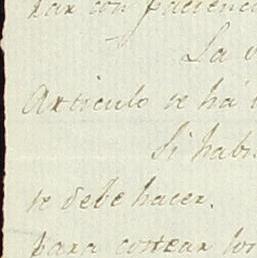 tar con pacienci
La v
Articulo se ha
Si habr
se debe hacer.
para costear los